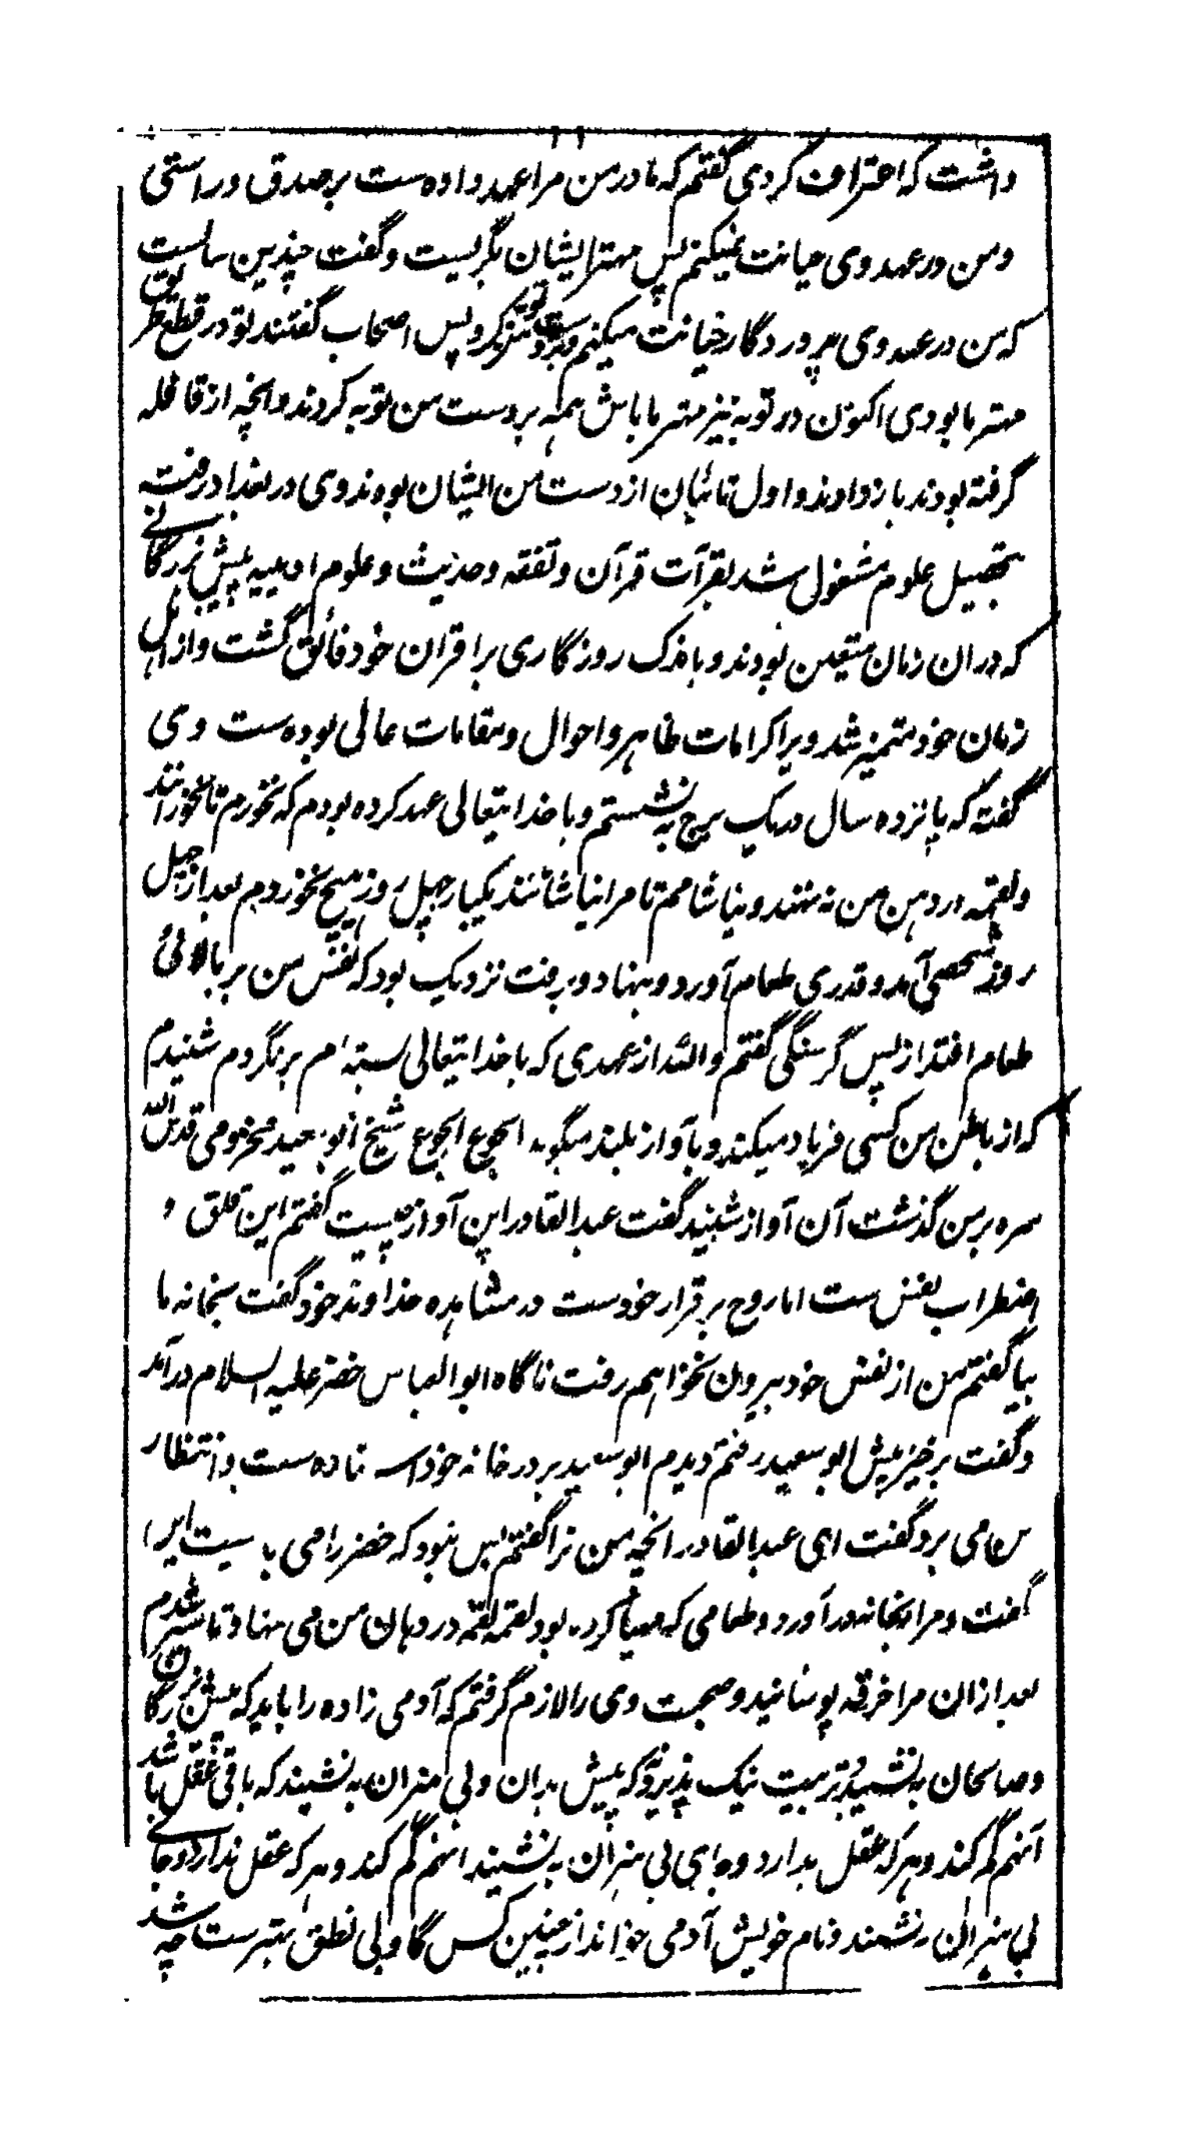 داشت که اعتراف کردی گفتم که مادر من مرا عهد داده ست بر صدق و راستی
و من در عهد وی خیانت نمیکنم پس مهتر ایشان بگریست و گفت چندین سالست
که من در عهد وی پروردگار خیانت میکنم و بر دست توبه کرد پس اصحاب گفتند تو در قطع طریق
مهتر ما بودی اکنون در توبه نیز مهتر ما باش همه بر دست من توبه کردند و آنچه از قافله
گرفته بودند باز دادند و اول تائبان از دست من ایشان بودند وی در بغداد رفت
بتحصیل علوم مشغول شد بقرآت قرآن و تفقه و حدیث و علوم ادبیه پیش بزرگانے
که دران زمان متعین بودند و باندک روزگاری بر اقران خود فائق گشت و از اہل
زمان خود متمیز شد ویرا کرامات ظاہر و احوال و مقامات عالی بوده ست وی
گفته که پانزده سال در یک برج به نشستم و با خدایتعالی عهد کرده بودم که نخورم تا نخورانند
و لقمه در دہن من نه نهند و نیاشامم تا مرا نیاشانند یکبار چہل روز ہیچ نخوردم بعد از چہل
روز شخصی آمد و قدری طعام آورد و بنهاد و برفت نزدیک بود که نفس من بر بالائی
طعام افتد از بس گرسنگی گفتم والله از عهدی که با خدایتعالی بسته ام برنگردم شنیدم
که از باطن من کسی فریاد میکند و بآواز بلند میگوید الجوع الجوع شیخ ابو سعید مخزومی قدس الله
سره بر من گذشت آن آواز شنید گفت عبدالقادر این آواز چیست گفتم این قلق و
اضطراب نفس ست اما روح برقرار خودست در مشاہده خداوند خود گفت بخانه ما
بیا گفتم من از نفس خود بیرون نخواہم رفت ناگاه ابو العباس خضر علیه السلام درآمد
و گفت برخیز پیش ابو سعید رفتم دیدم ابو سعید بر در خانه خود استاده ست و انتظار
من می برد گفت ای عبدالقادر آنچه من ترا گفتم بس نبود که خضر را می بایست این
گفت و مرا بخانه درآورد و طعامی که مهیا کرده بود لقمه لقمه در دہان من می نهاد تا سیر شدم
بعد ازان مرا خرقه پوشانید و صحبت وی را لازم گرفتم که آدمی زاده را باید که پیش بزرگان
و صالحان به نشیند و تربیت نیک پذیرد که پیش بدان و بی ہنران به نشیند که باقی عقل باشد
آنہم گم کند و ہرکه عقل ندارد و جای بی ہنران به نشیند آنہم گم کند و ہرکه عقل ندارد و جائے
بی ہنران نشیند و نام خویش آدمی خواند از چنین کس گاو بی نطق بہتر ست چه شد